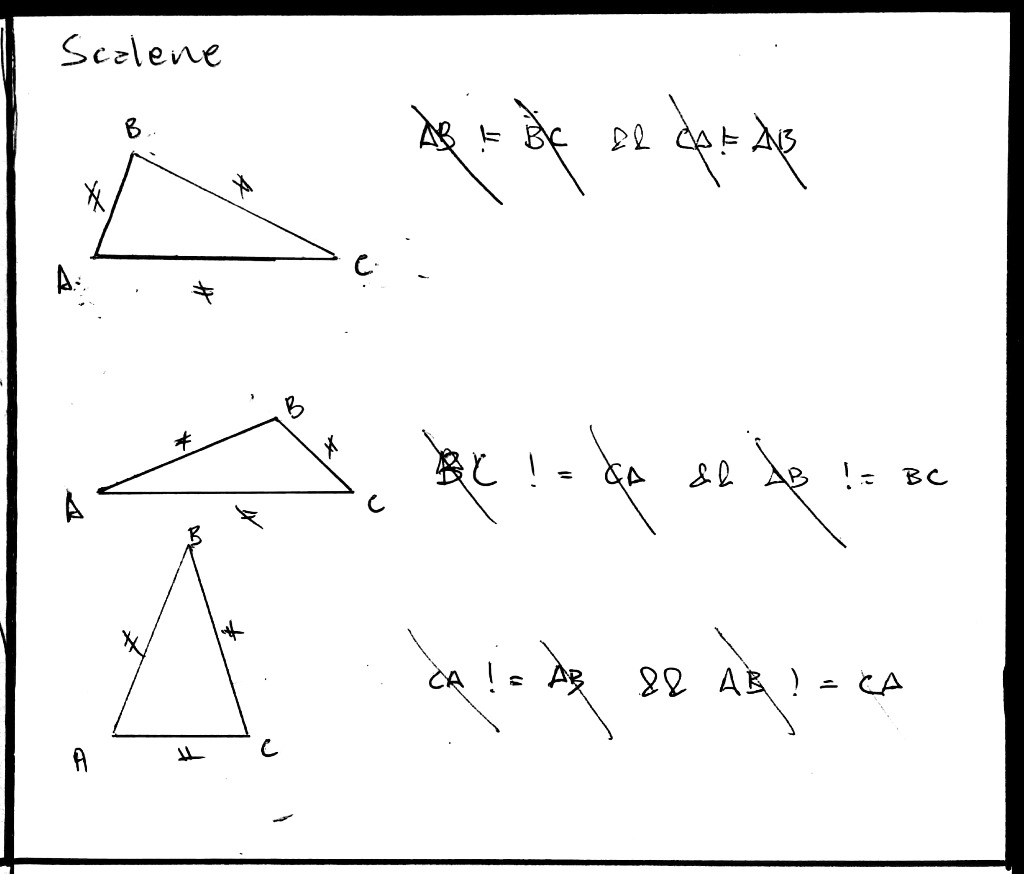 Scalene
B
AB != BC && CA != AB
A
C
B
A
C
BC != CA && AB != BC
B
CA != AB && AB != CA
A
C